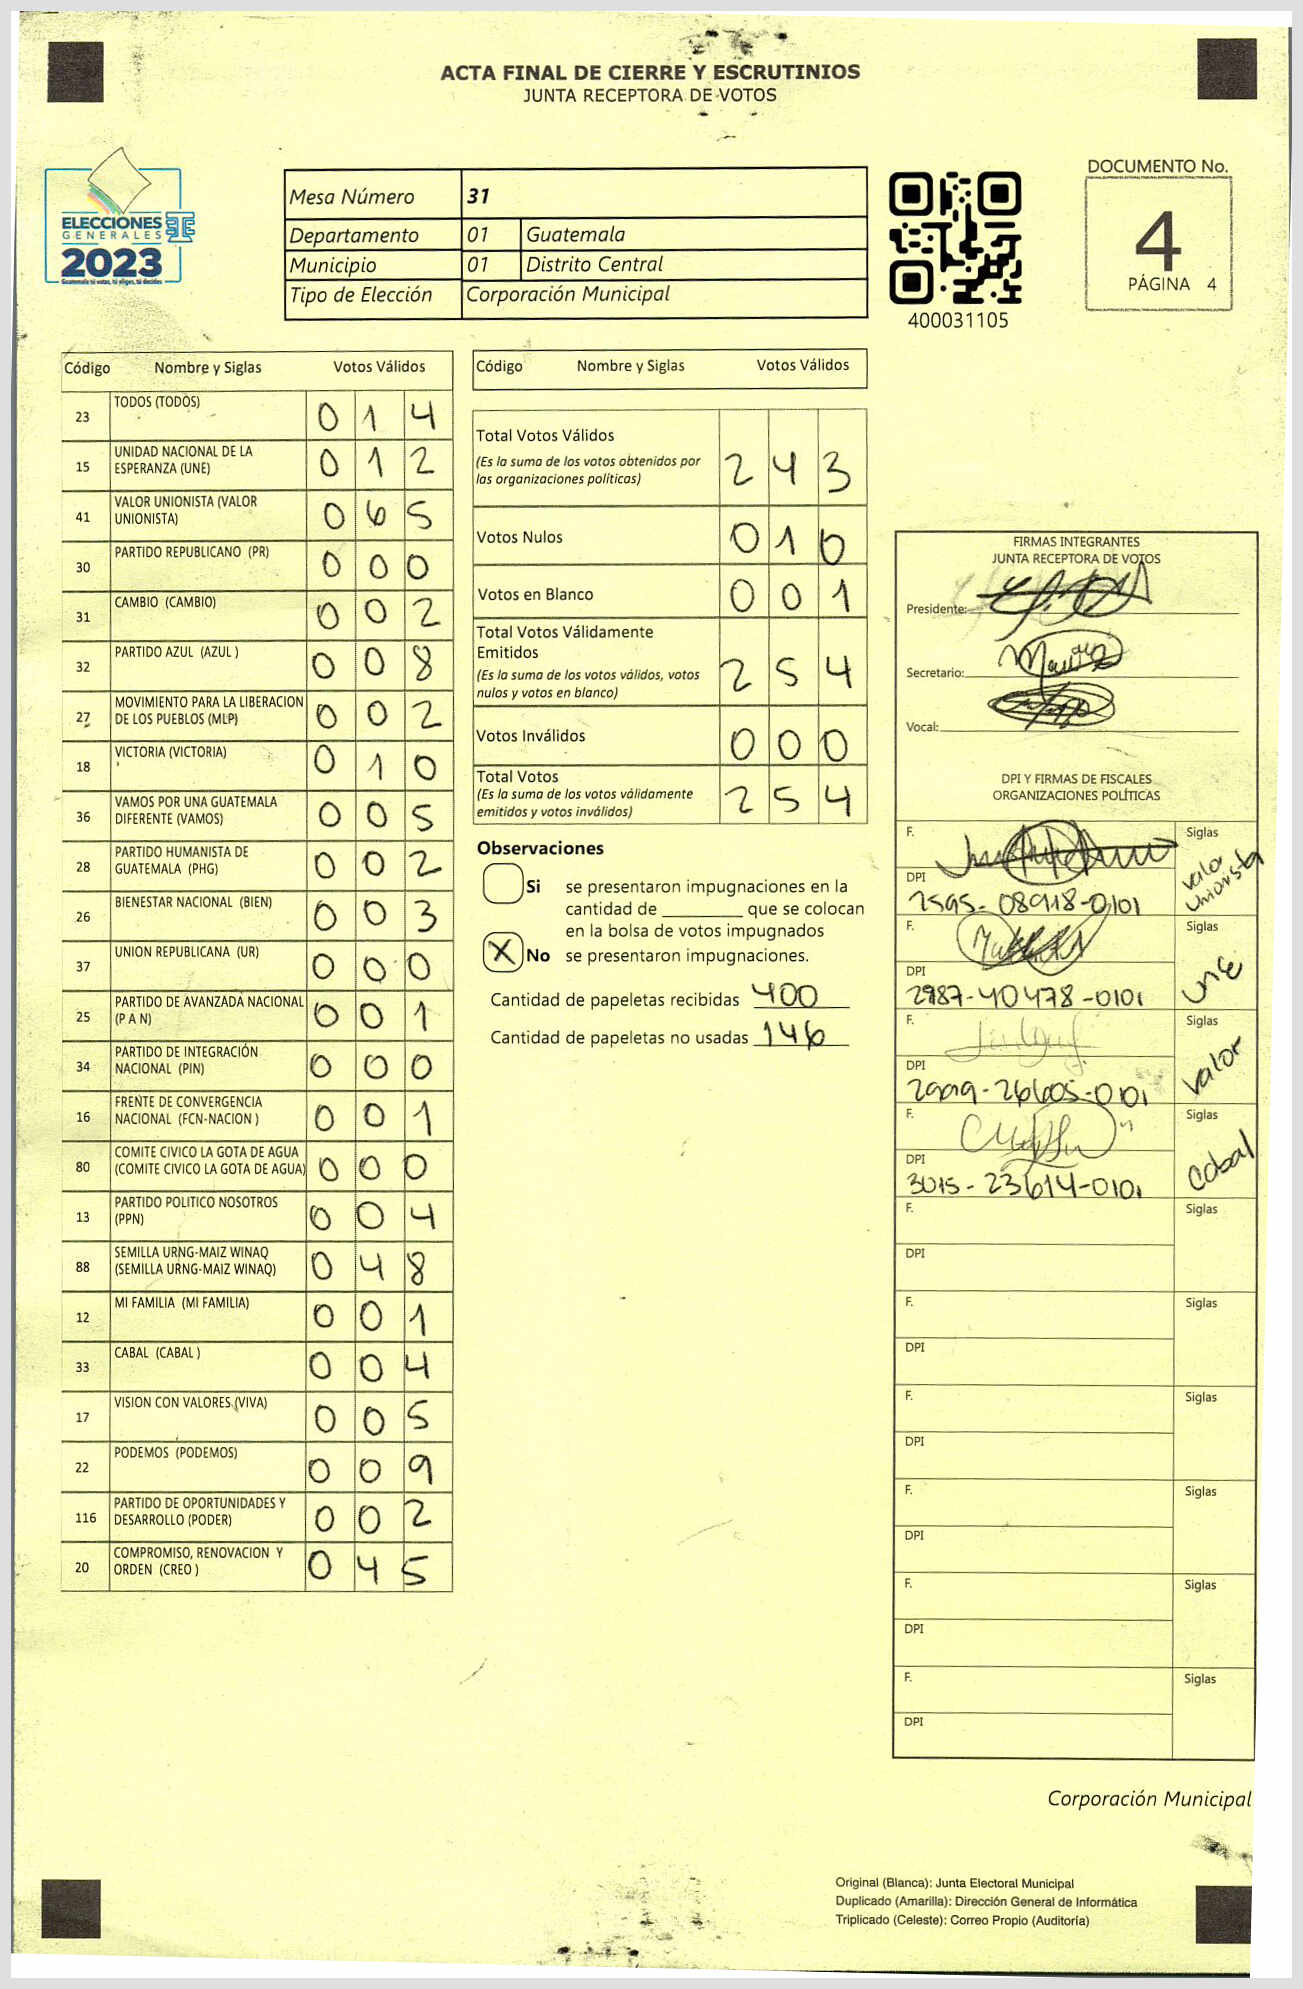 ACTA FINAL DE CIERRE Y ESCRUTINIOS
JUNTA RECEPTORA DE VOTOS
ELECCIONES
GENERALES
2023
Guatemala tú votas, tú eliges, tú decides
Mesa Número 31
Departamento 01 Guatemala
Municipio 01 Distrito Central
Tipo de Elección Corporación Municipal
400031105
DOCUMENTO No.
4
PÁGINA 4
Código Nombre y Siglas Votos Válidos
23 TODOS (TODOS) 0 1 4
15 UNIDAD NACIONAL DE LA
ESPERANZA (UNE) 0 1 2
41 VALOR UNIONISTA (VALOR
UNIONISTA) 0 6 5
30 PARTIDO REPUBLICANO (PR) 0 0 0
31 CAMBIO (CAMBIO) 0 0 2
32 PARTIDO AZUL (AZUL ) 0 0 8
27 MOVIMIENTO PARA LA LIBERACION
DE LOS PUEBLOS (MLP) 0 0 2
18 VICTORIA (VICTORIA) 0 1 0
36 VAMOS POR UNA GUATEMALA
DIFERENTE (VAMOS) 0 0 5
28 PARTIDO HUMANISTA DE
GUATEMALA (PHG) 0 0 2
26 BIENESTAR NACIONAL (BIEN) 0 0 3
37 UNION REPUBLICANA (UR) 0 0 0
25 PARTIDO DE AVANZADA NACIONAL
(P A N) 0 0 1
34 PARTIDO DE INTEGRACIÓN
NACIONAL (PIN) 0 0 0
16 FRENTE DE CONVERGENCIA
NACIONAL (FCN-NACION ) 0 0 1
80 COMITE CIVICO LA GOTA DE AGUA
(COMITE CIVICO LA GOTA DE AGUA) 0 0 0
13 PARTIDO POLITICO NOSOTROS
(PPN) 0 0 4
88 SEMILLA URNG-MAIZ WINAQ
(SEMILLA URNG-MAIZ WINAQ) 0 4 8
12 MI FAMILIA (MI FAMILIA) 0 0 1
33 CABAL (CABAL ) 0 0 4
17 VISION CON VALORES (VIVA) 0 0 5
22 PODEMOS (PODEMOS) 0 0 9
116 PARTIDO DE OPORTUNIDADES Y
DESARROLLO (PODER) 0 0 2
20 COMPROMISO, RENOVACION Y
ORDEN (CREO ) 0 4 5
Código Nombre y Siglas Votos Válidos
Total Votos Válidos
(Es la suma de los votos obtenidos por
las organizaciones políticas) 2 4 3
Votos Nulos 0 1 0
Votos en Blanco 0 0 1
Total Votos Válidamente
Emitidos
(Es la suma de los votos válidos, votos
nulos y votos en blanco) 2 5 4
Votos Inválidos 0 0 0
Total Votos
(Es la suma de los votos válidamente
emitidos y votos inválidos) 2 5 4
Observaciones
Si se presentaron impugnaciones en la
cantidad de ________ que se colocan
en la bolsa de votos impugnados
X No se presentaron impugnaciones.
Cantidad de papeletas recibidas 400
Cantidad de papeletas no usadas 146
FIRMAS INTEGRANTES
JUNTA RECEPTORA DE VOTOS
Presidente:
Secretario:
Vocal:
DPI Y FIRMAS DE FISCALES
ORGANIZACIONES POLÍTICAS
F. Siglas
Valor
Unionista
DPI
2595-08918-0101
F. Siglas
UNE
DPI
2987-40478-0101
F. Siglas
Valor
DPI
2999-26605-0101
F. Siglas
Cabal
DPI
3015-23614-0101
F. Siglas
DPI
F. Siglas
DPI
F. Siglas
DPI
F. Siglas
DPI
F. Siglas
DPI
F. Siglas
DPI
Corporación Municipal
Original (Blanca): Junta Electoral Municipal
Duplicado (Amarilla): Dirección General de Informática
Triplicado (Celeste): Correo Propio (Auditoría)